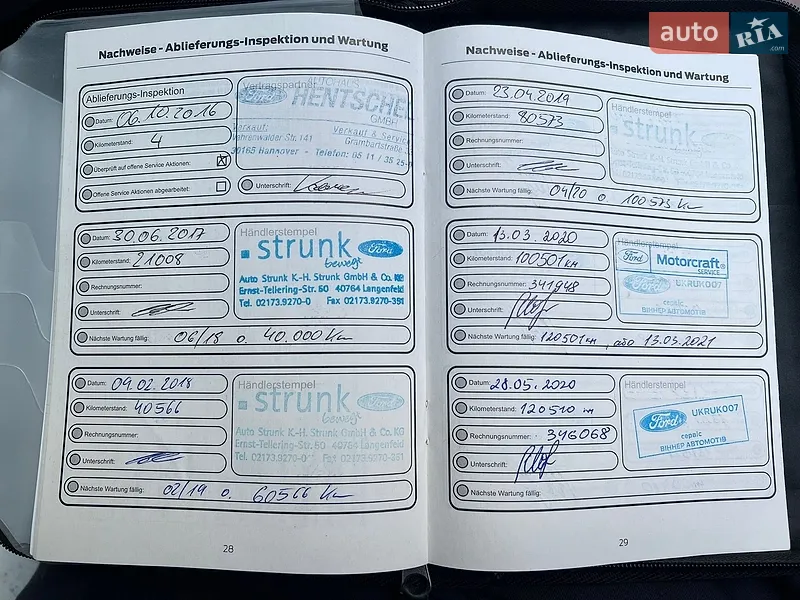 Nachweise - Ablieferungs-Inspektion und Wartung
Ablieferungs-Inspektion
Datum: 06.10.2016
Kilometerstand: 4
Überprüft auf offene Service Aktionen:
Offene Service Aktionen abgearbeitet:
Vertragspartner
AUTOHAUS
Ford HENTSCHEL
GMBH
Verkauf: Verkauf & Service
Vahrenwalder Str. 141
30165 Hannover - Telefon: 05 11 / 35 25
Unterschrift:
Datum: 30.06.2017
Kilometerstand: 21008
Rechnungsnummer:
Unterschrift:
Nächste Wartung fällig: 06/18 o. 40.000 Km
Händlerstempel
strunk Ford
bewegt
Auto Strunk K.-H. Strunk GmbH & Co. KG
Ernst-Tellering-Str. 50 40764 Langenfeld
Tel. 02173.9270-0 Fax 02173.9270-351
Datum: 09.02.2018
Kilometerstand: 40566
Rechnungsnummer:
Unterschrift:
Nächste Wartung fällig: 02/19 o. 60566 Km
Händlerstempel
strunk Ford
bewegt
Auto Strunk K.-H. Strunk GmbH & Co. KG
Ernst-Tellering-Str. 50 40764 Langenfeld
Tel. 02173.9270-0 Fax 02173.9270-351
28
Nachweise - Ablieferungs-Inspektion und Wartung
Datum: 23.04.2019
Kilometerstand: 80573
Rechnungsnummer:
Unterschrift:
Nächste Wartung fällig: 04/20 o. 100573 Km
Händlerstempel
strunk
Datum: 13.03.2020
Kilometerstand: 100501 км
Rechnungsnummer: 341948
Unterschrift:
Nächste Wartung fällig: 120501 км, або 13.03.2021
Händlerstempel
Ford Motorcraft
SERVICE
Ford UKRUK007
сервіс
ВІННЕР АВТОМОТІВ
Datum: 28.05.2020
Kilometerstand: 120510 км
Rechnungsnummer: 346068
Unterschrift:
Nächste Wartung fällig:
Händlerstempel
Ford UKRUK007
сервіс
ВІННЕР АВТОМОТІВ
29
auto RIA .com